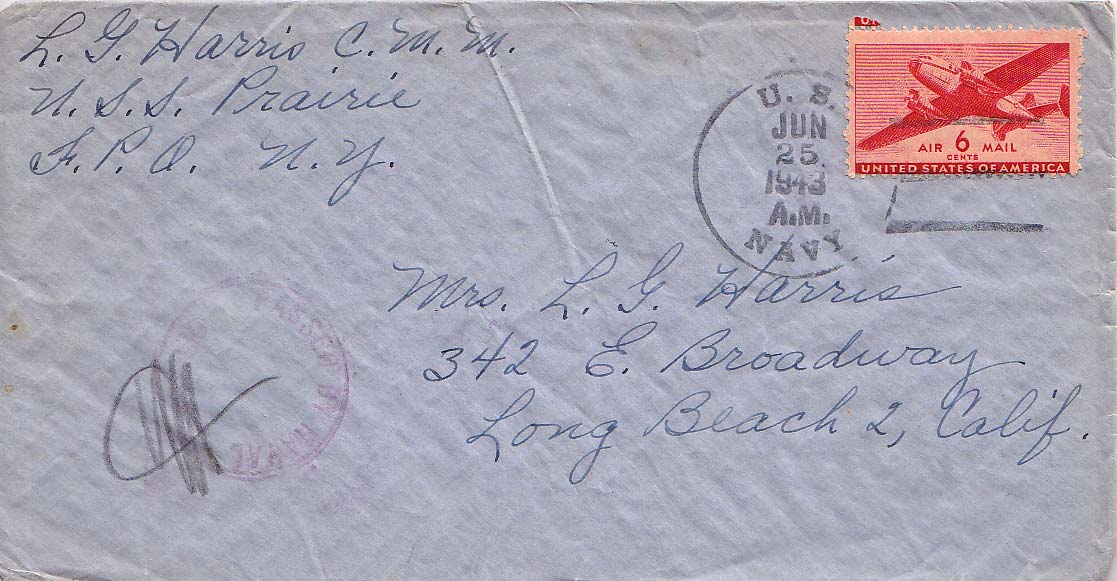 L. G. Harris C.M.M.
U.S.S. Prairie
F.P.O. N.Y.
U. S.
JUN
25
1943
A.M.
NAVY
AIR 6 MAIL
CENTS
UNITED STATES OF AMERICA
Mrs. L. G. Harris
342 E. Broadway
Long Beach 2, Calif.
PASSED BY NAVAL